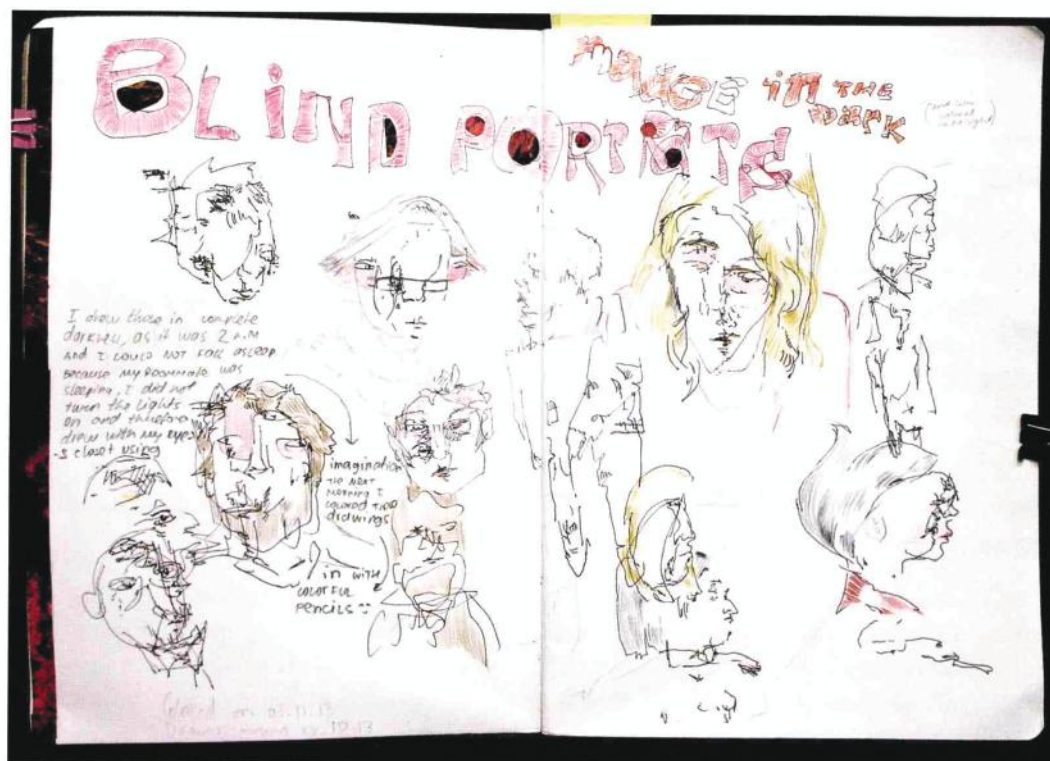 BLIND PORTRATS
MADE IN THE
DARK
I drew those in complete
darkness, as it was 2 A.M
AND I COULD NOT FALL ASLEEP.
Because my ROOMMATE was
sleeping, I did not
turn the lights
on and therefore
draw with my eyes
closet using
imagination
THE NEXT
MORNING I
COLORED THESE
drawings
in with
COLORFUL
pencils